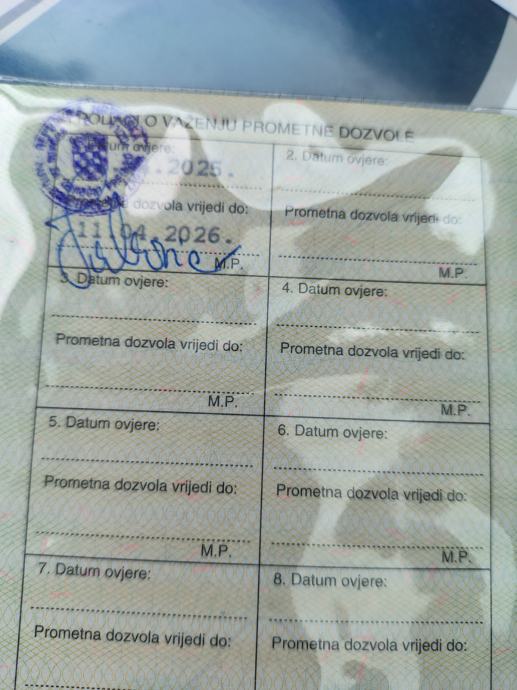 O VAŽENJU PROMETNE DOZVOLE
Datum ovjere:
.2025.
dozvola vrijedi do:
11.04.2026.
M.P.
2. Datum ovjere:
Prometna dozvola vrijedi do:
M.P.
3. Datum ovjere:
Prometna dozvola vrijedi do:
M.P.
4. Datum ovjere:
Prometna dozvola vrijedi do:
M.P.
5. Datum ovjere:
Prometna dozvola vrijedi do:
M.P.
6. Datum ovjere:
Prometna dozvola vrijedi do:
M.P.
7. Datum ovjere:
Prometna dozvola vrijedi do:
8. Datum ovjere:
Prometna dozvola vrijedi do: